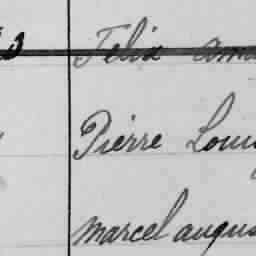 3 Felix
Pierre Louis
Marcel augus